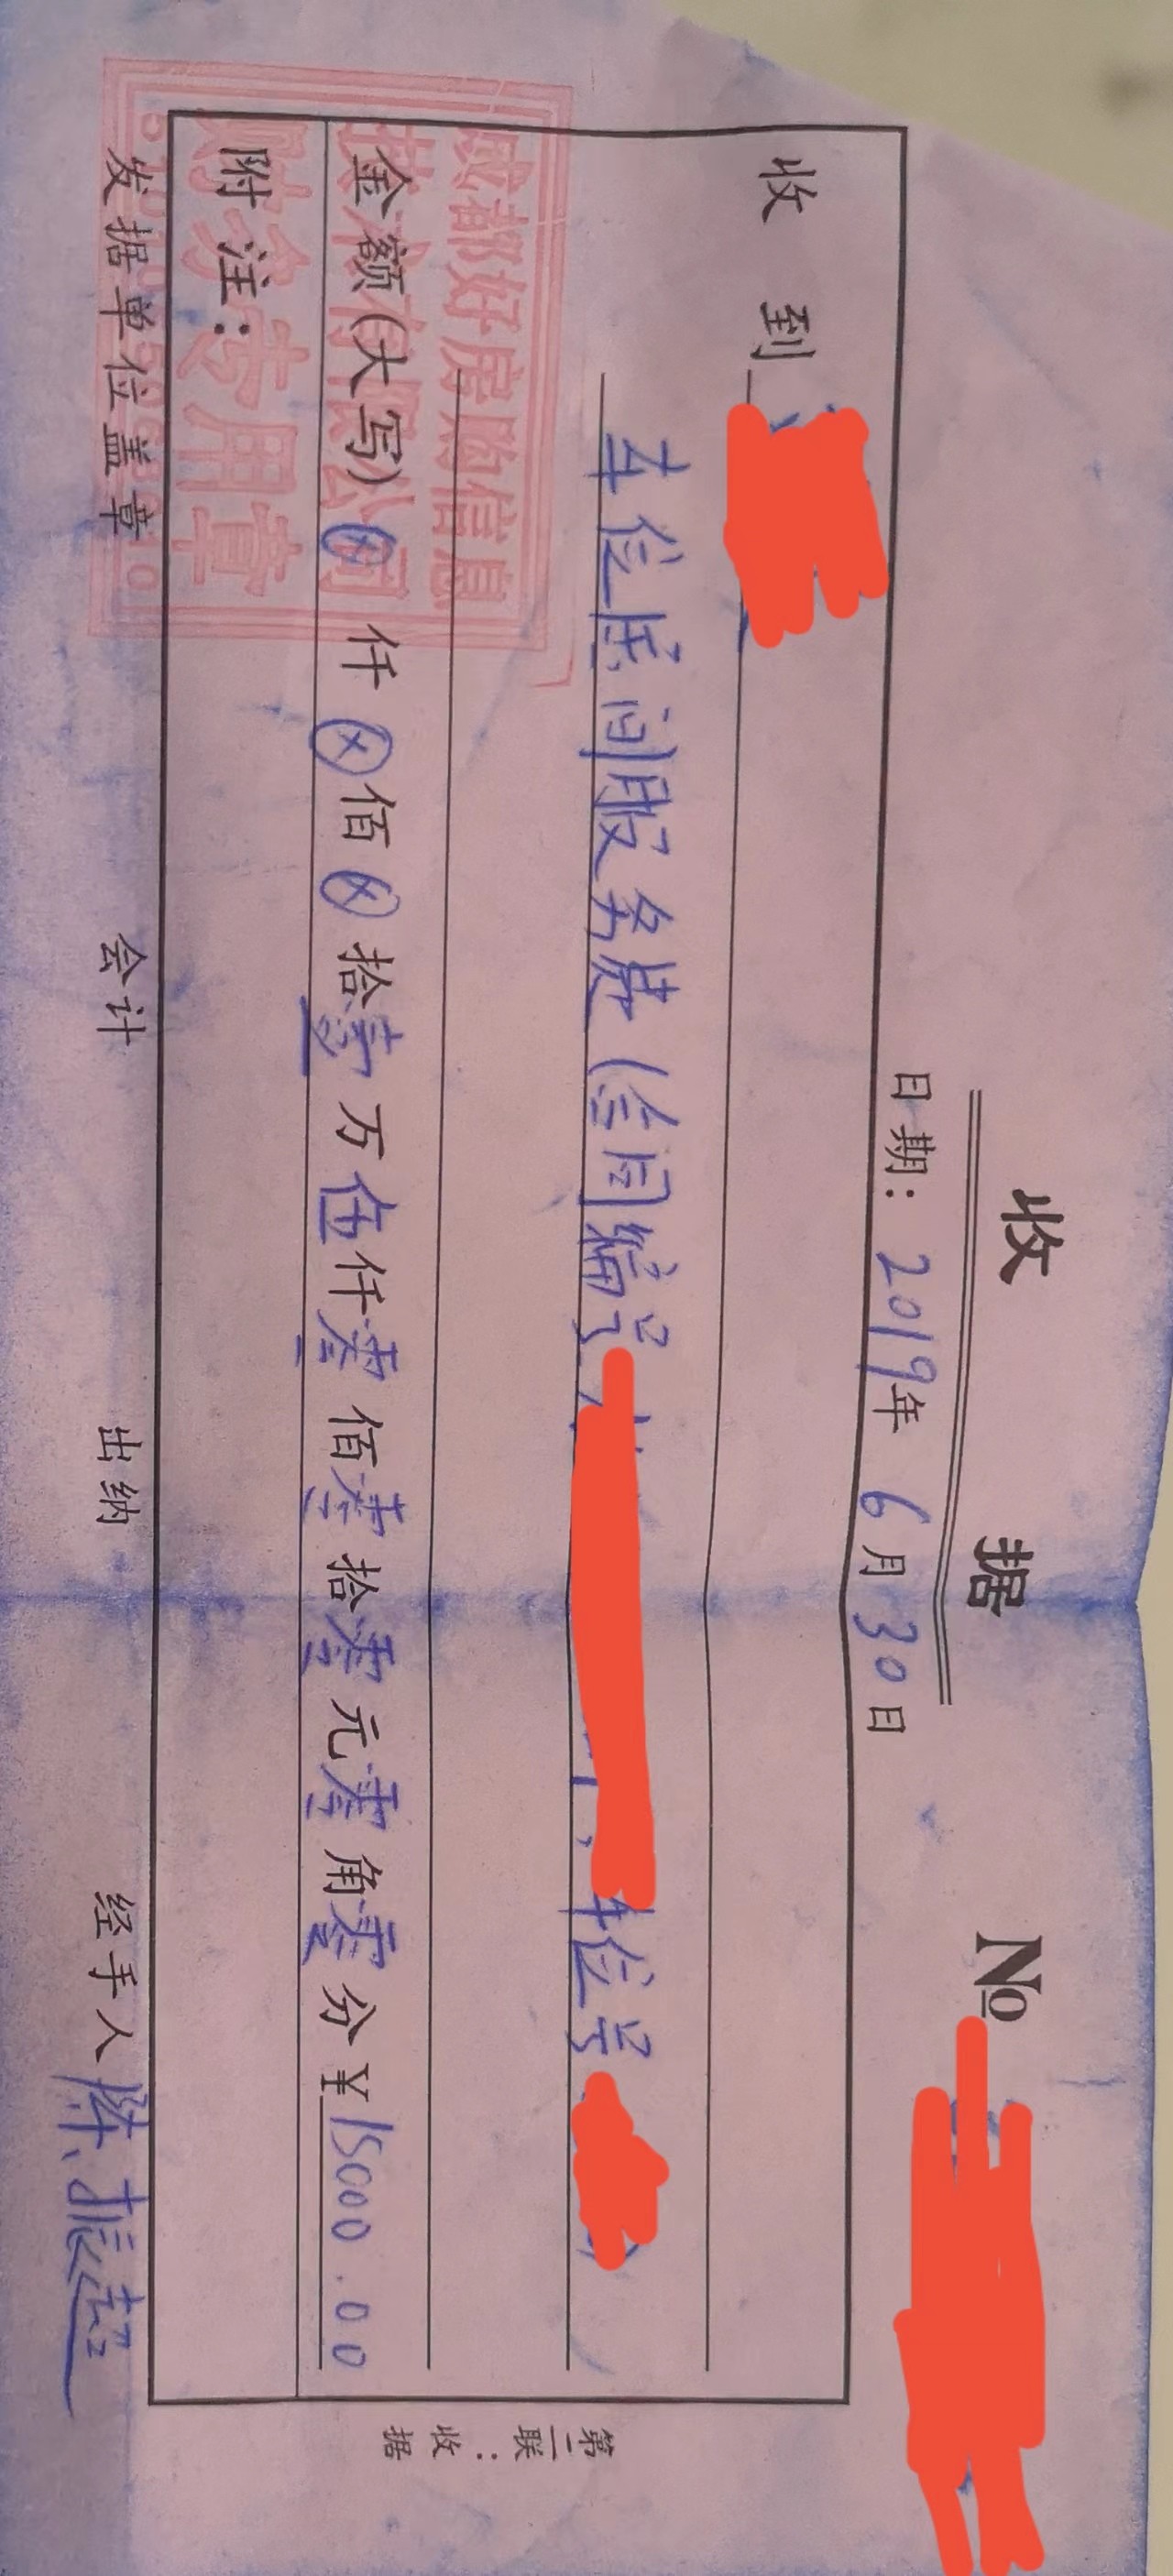 收 据
№
日期: 2019年 6月 30日
收 到
车位居间服务费(合同编号
车位号
金额(大写) ⊗仟⊗佰⊗拾壹万伍仟零佰零拾零元零角零分 ¥15000.00
附 注:
发据单位盖章 会计 出纳 经手人 陈振超
第二联:收据
成都好房购信息
技术有限公司
财务专用章